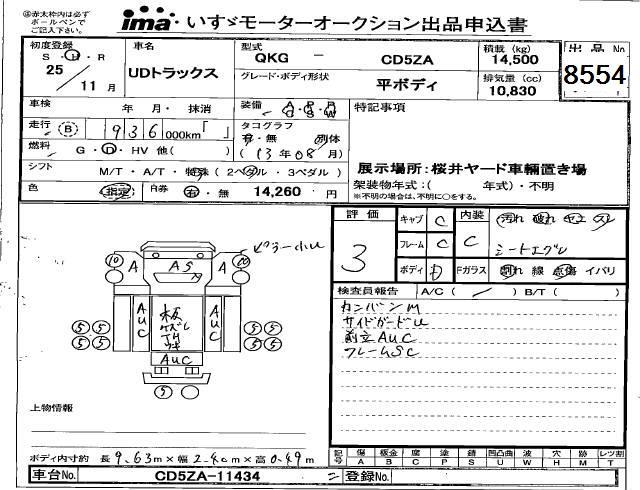 ※赤太枠内は必ず ボールペンで ご記入下さい
ima いすゞモーターオークション出品申込書
初度登録 S・H・R 25/11月
車名 UDトラックス
型式 QKG － CD5ZA
グレード・ボディ形状 平ボディ
積載 (kg) 14,500
排気量 (cc) 10,830
出品No 8554
車検 年 月・ 抹消
走行 (B) 936,000km「 」
燃料 G・D・HV 他( )
シフト M/T・A/T・特殊 (2ペダル・3ペダル)
色 指定 白券 有・無 14,260 円
装備 A P P S W
タコグラフ 有・無 別体
(13年08月)
特記事項
展示場所：桜井ヤード車輛置き場
架装物年式：( 年式)・不明
※不明の場合は、不明に○をする。
評価 3
キャブ C
フレーム C
ボディ D
内装 C 汚れ 破れ コゲ スレ
シートエグレ
Fガラス 割れ 線 点傷 イバリ
検査員報告 A/C ( ／ ) B/T ( )
カンバンM
サイドガードU
前立AUC
フレームSC
ピラー小U
10 A AS A 10
AUC 板 ズレ AUC
5 5 5 5
5 5 5 5
AUC
5
上物情報
ボディ内寸約 長9.63m×幅2.40m×高0.49m
記号 傷 A 板金 B 腐 C 塗 P 錆 S 凹凸曲 U 波 W 穴 H 跡 M レツ割 T
車台No. CD5ZA-11434 登録No.